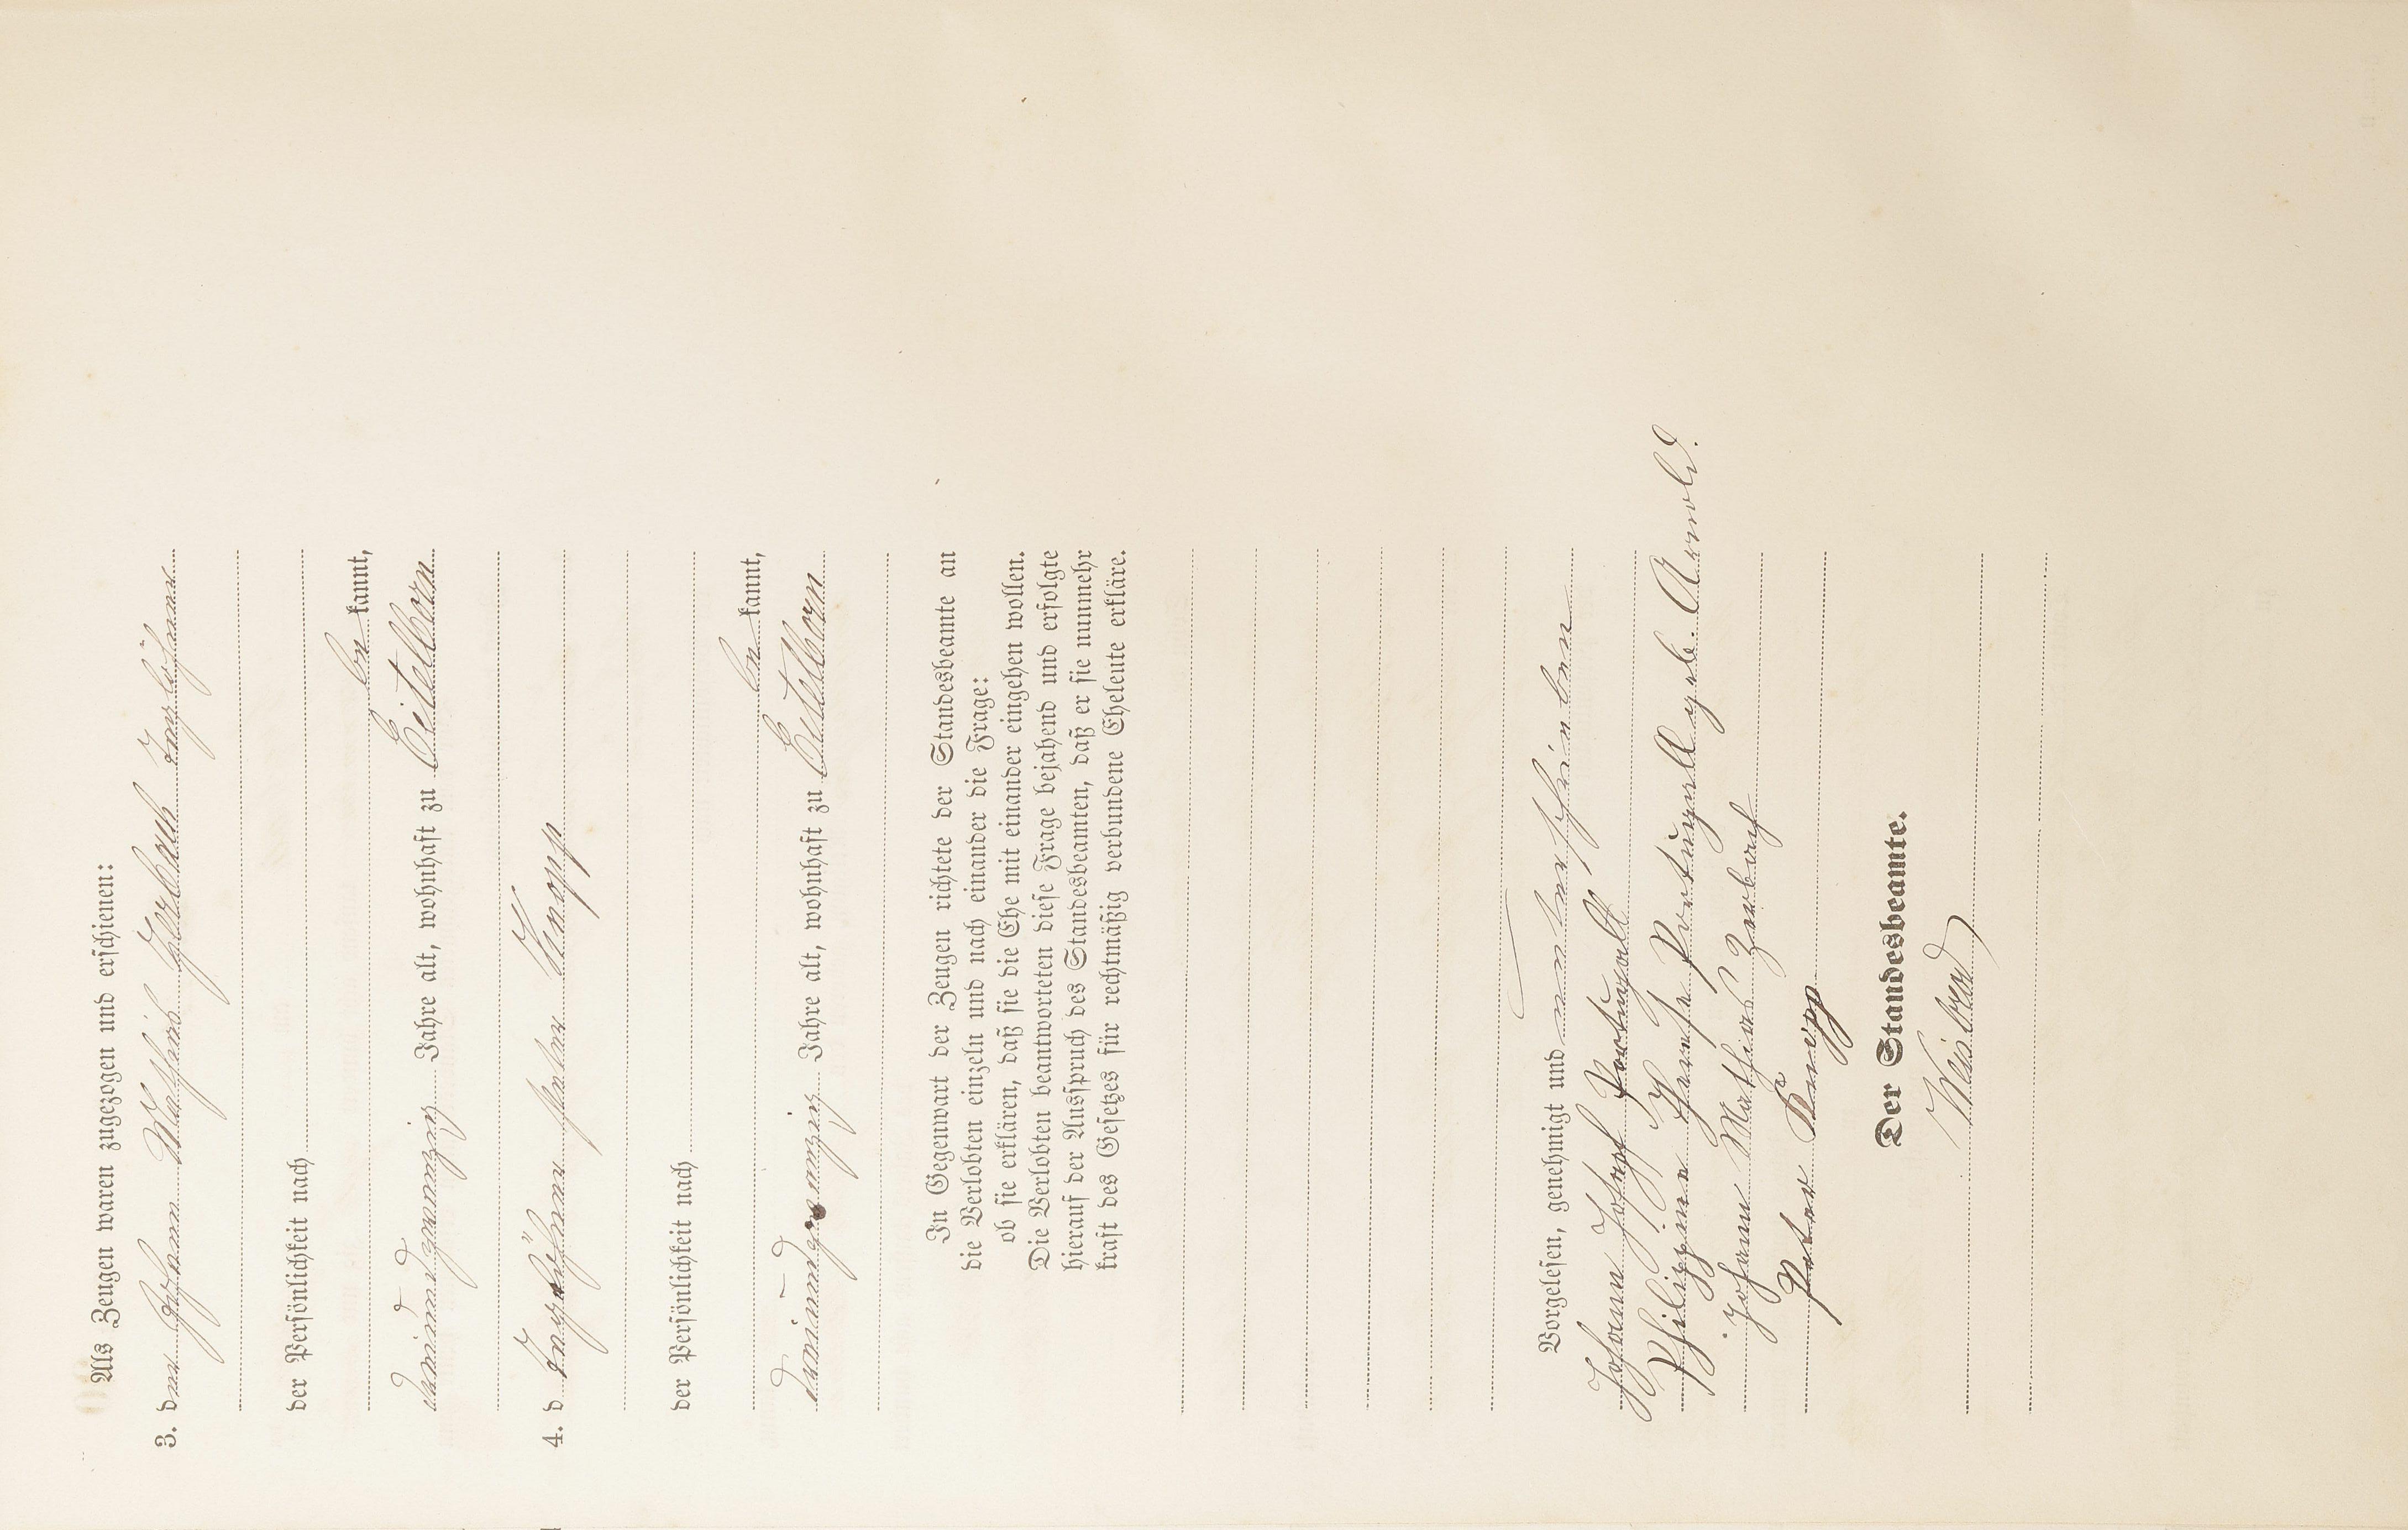 Als Zeugen waren zugezogen und erschienen:
3. der Johann Mathias Zerbach Tagelöhner
der Persönlichkeit nach
be kannt,
dreiundzwanzig Jahre alt, wohnhaft zu Eitelborn
4. d Tagelöhner Peter Knopp
der Persönlichkeit nach
be kannt,
dreiundzwanzig Jahre alt, wohnhaft zu Eitelborn
In Gegenwart der Zeugen richtete der Standesbeamte an
die Verlobten einzeln und nach einander die Frage:
ob sie erklären, daß sie die Ehe mit einander eingehen wollen.
Die Verlobten beantworteten diese Frage bejahend und erfolgte
hierauf der Ausspruch des Standesbeamten, daß er sie nunmehr
kraft des Gesetzes für rechtmäßig verbundene Eheleute erkläre.
Vorgelesen, genehmigt und unterschrieben
Johann Josef Portugall
Philippine Portugall geb. Arnold.
Johann Mathias Zerbach
Peter
Der Standesbeamte.